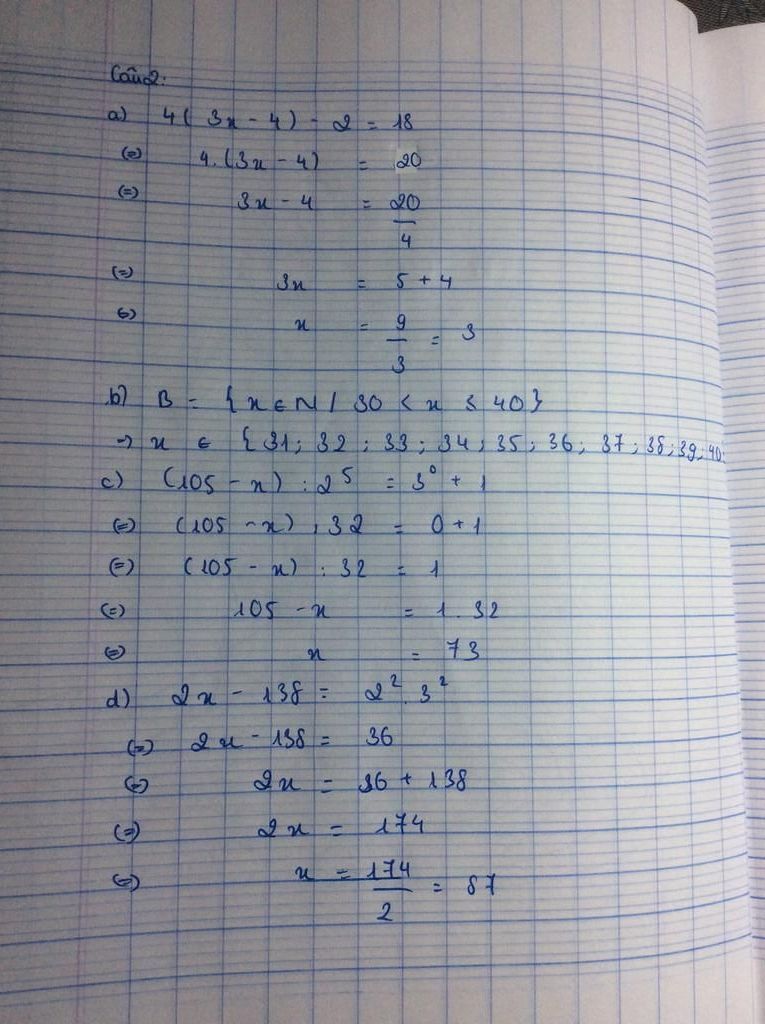 Câu 2:
a) 4( 3x - 4) - 2 = 18
(=) 4.(3x - 4) = 20
(=) 3x - 4 = 20/4
(=) 3x = 5 + 4
(=) x = 9/3 = 3
b) B = { x ∈ N / 30 < x ≤ 40}
→ x ∈ {31; 32; 33; 34; 35; 36; 37; 38; 39; 40
c) (105 - x) : 2⁵ = 3⁰ + 1
(=) (105 - x) : 32 = 0 + 1
(=) (105 - x) : 32 = 1
(=) 105 - x = 1.32
(=) x = 73
d) 2x - 138 = 2² . 3²
(=) 2x - 138 = 36
(=) 2x = 36 + 138
(=) 2x = 174
(=) x = 174/2 = 87